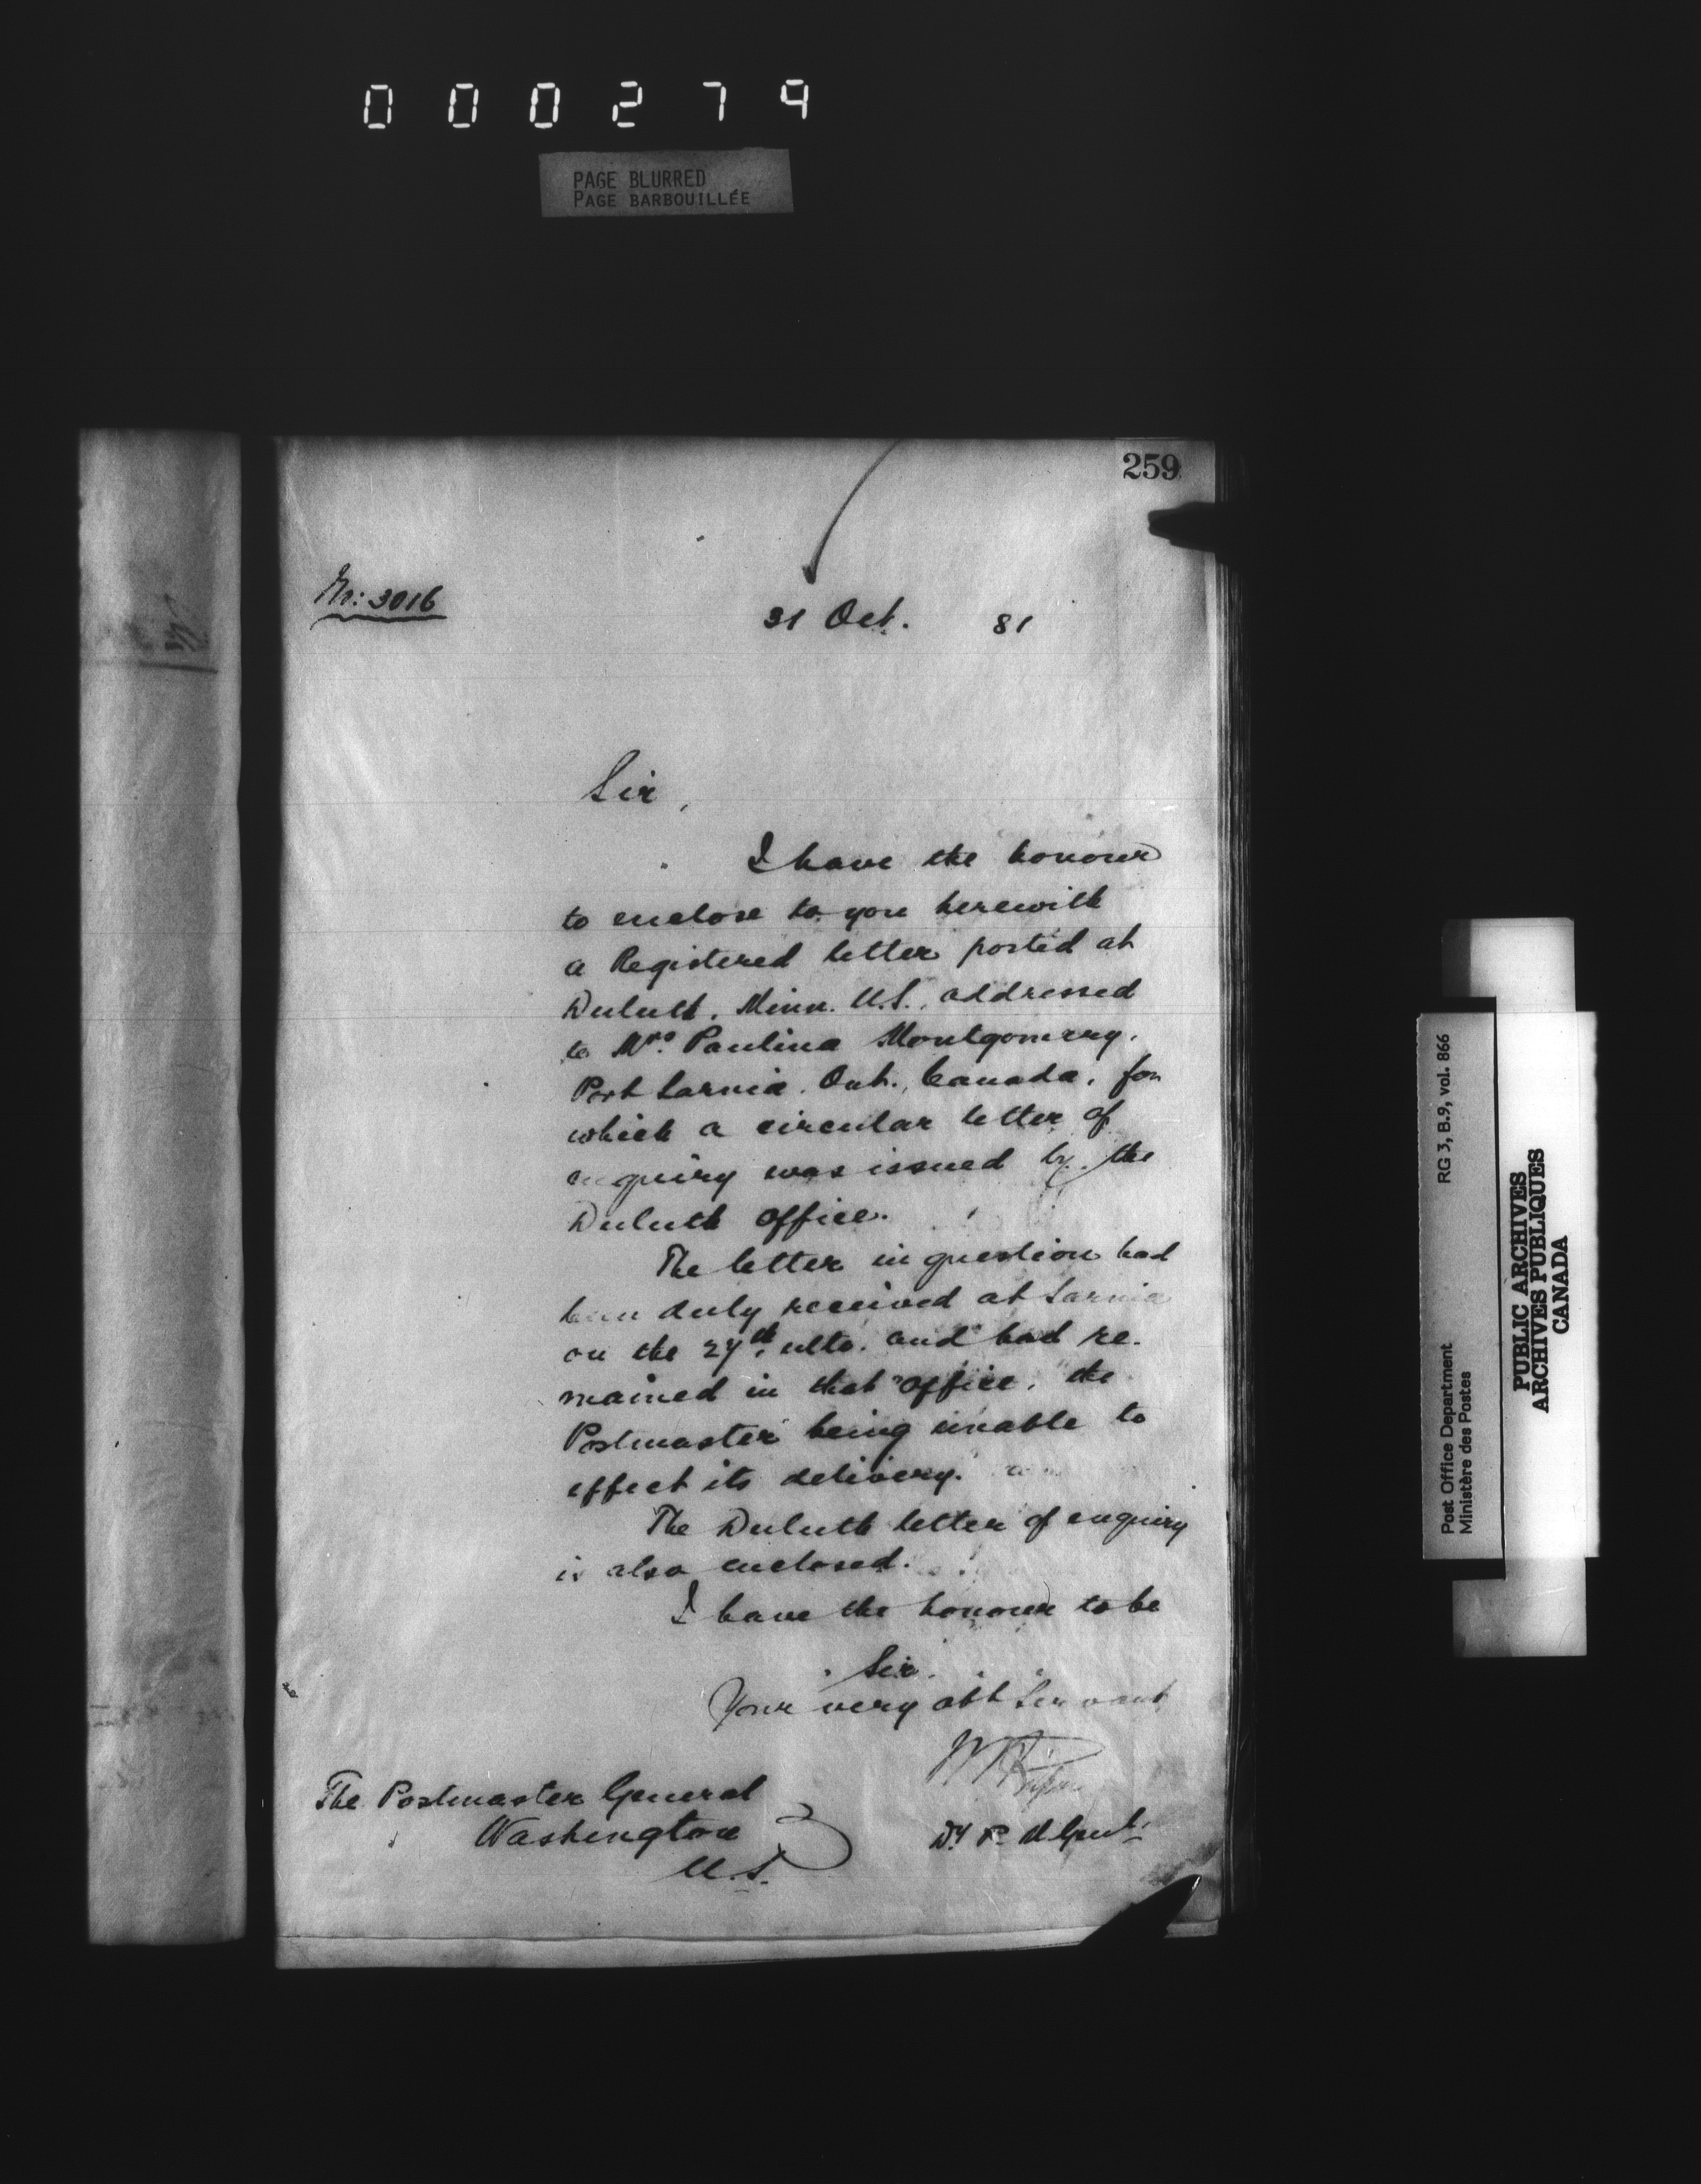 000279
PAGE BLURRED
PAGE BARBOUILLÉE
259
No: 3016
31 Oct. 81
Sir,
I have the honour
to enclose to you herewith
a Registered letter posted at
Duluth, Minn. U.S., addressed
to Mrs. Paulina Montgomery,
Port Sarnia. Ont., Canada, for
which a circular letter of
enquiry was issued by the
Duluth office.
The letter in question had
been duly received at Sarnia
on the 27th. ulto. and had re-
mained in that office, the
Postmaster being unable to
effect its delivery.
The Duluth letter of enquiry
is also enclosed.
I have the honour to be
Sir.
Your very obt Servant
Dy P. M Genl.
The Postmaster General
Washington
U.S.
Post Office Department RG 3, B.9, vol. 866
Ministère des Postes
PUBLIC ARCHIVES
ARCHIVES PUBLIQUES
CANADA